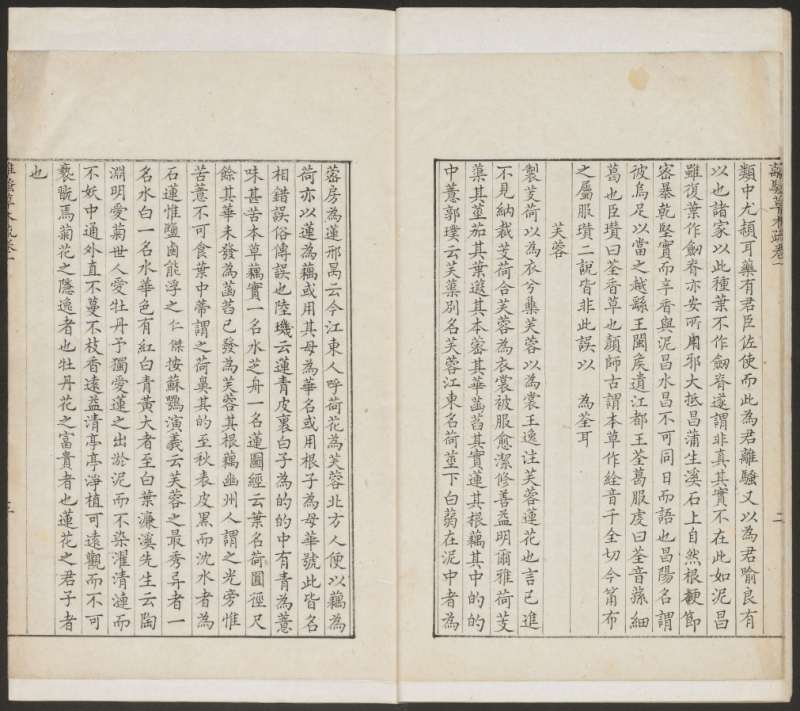 離騷草木疏卷一
二
類中尤頡耳藥有君臣佐使而此為君離騷又以為君喻良有
以也諸家以此種葉不作劒脊遂謂非真其實不在此如泥昌
雖復葉作劒脊亦安所用邪大抵昌蒲生溪石上自然根鞕節
密暴乾堅實而辛香與泥昌水昌不可同日而語也昌陽名謂
彼烏足以當之越繇王閩矦遺江都王荃葛服虔曰荃音蓀細
葛也臣瓚曰荃香草也顏師古謂本草作絟音千全切今筩布
之屬服瓚二說皆非此誤以 為荃耳
芙蓉
製芰荷以為衣兮集芙蓉以為裳王逸注芙蓉蓮花也言己進
不見納裁芰荷合芙蓉為衣裳被服愈潔修善益明爾雅荷芙
蕖其莖茄其葉蕸其本蔤其華菡萏其實蓮其根藕其中的的
中薏郭璞云芙蕖別名芙蓉江東名荷莖下白蒻在泥中者為
蔤房為蓮邢昺云今江東人呼荷花為芙蓉北方人便以藕為
荷亦以蓮為藕或用其母為華名或用根子為母華號此皆名
相錯誤俗傳誤也陸璣云蓮青皮裏白子為的的中有青為薏
味甚苦本草藕實一名水芝舟一名蓮圖經云葉名荷圓徑尺
餘其華未發為菡萏已發為芙蓉其根藕幽州人謂之光旁惟
苦薏不可食葉中蒂謂之荷鼻其的至秋表皮黑而沈水者為
石蓮惟鹽鹵能浮之仁傑按蘇鶚演義云芙蓉之最秀异者一
名水白一名水華色有紅白青黃大者至百葉濂溪先生云陶
淵明愛菊世人愛牡丹予獨愛蓮之出淤泥而不染濯清漣而
不妖中通外直不蔓不枝香遠益清亭亭淨植可遠觀而不可
褻翫焉菊花之隱逸者也牡丹花之富貴者也蓮花之君子者
也
離騷草木疏卷一